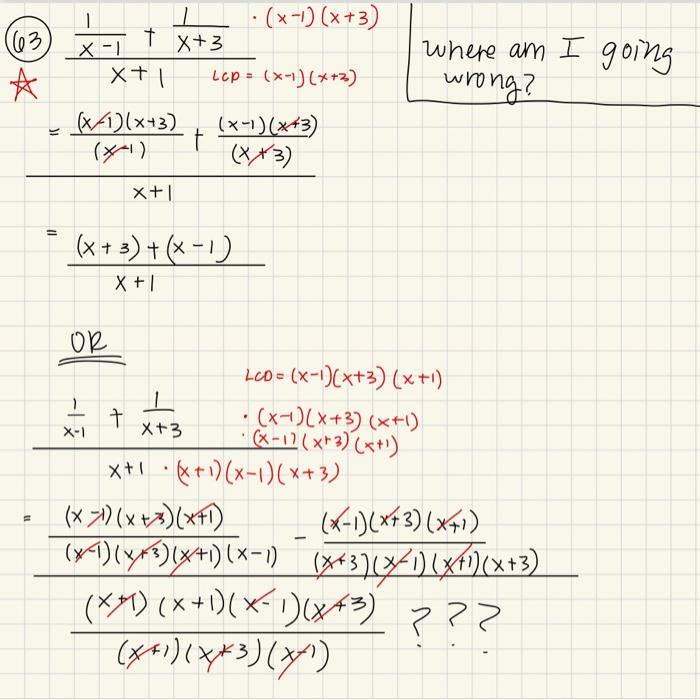 63
1/(x-1) + 1/(x+3) · (x-1)(x+3)
x+1 LCD = (x-1)(x+3)
where am I going
wrong?
= (x-1)(x+3)/(x-1) + (x-1)(x+3)/(x+3)
x+1
= (x+3)+(x-1)
x+1
OR
LCD = (x-1)(x+3)(x+1)
1/(x-1) + 1/(x+3) · (x-1)(x+3)(x+1)
· (x-1)(x+3)(x+1)
x+1 · (x+1)(x-1)(x+3)
= (x-1)(x+3)(x+1)/(x-1)(x+3)(x+1)(x-1) - (x-1)(x+3)(x+1)/(x+3)(x-1)(x+1)(x+3)
(x+1)(x+1)(x-1)(x+3) ???
(x+1)(x+3)(x-1)